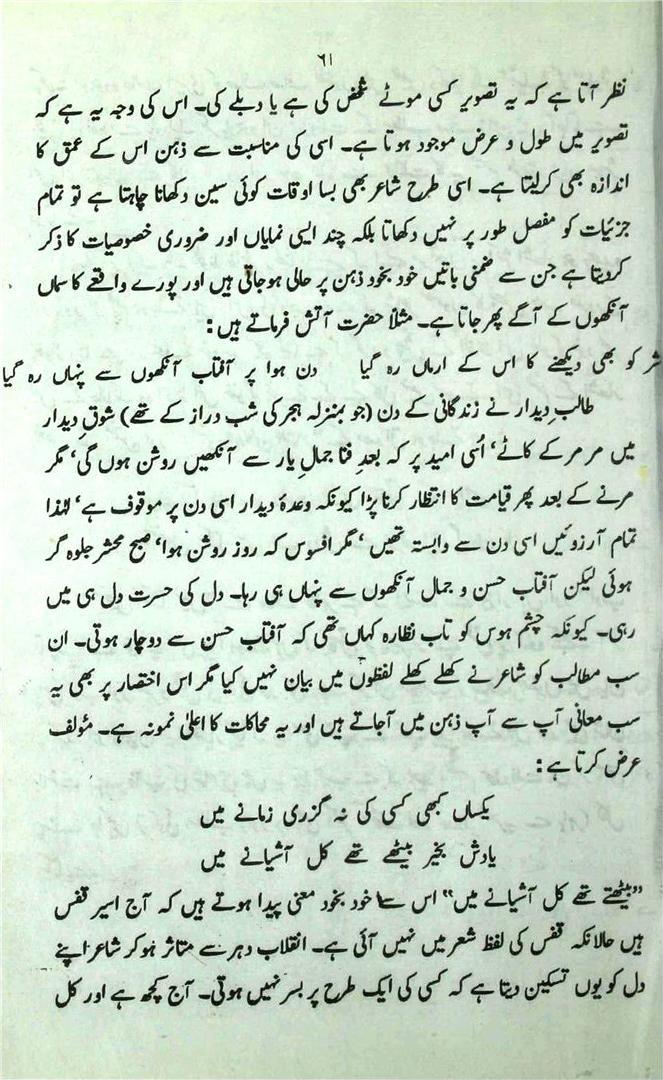 ۶۱
نظر آتا ہے کہ یہ تصویر کسی موٹے شخص کی ہے یا دبلے کی۔ اس کی وجہ یہ ہے کہ
تصویر میں طول و عرض موجود ہوتا ہے۔ اسی کی مناسبت سے ذہن اس کے عمق کا
اندازہ بھی کرلیتا ہے۔ اسی طرح شاعر بھی بسا اوقات کوئی سین دکھانا چاہتا ہے تو تمام
جزئیات کو مفصل طور پر نہیں دکھاتا بلکہ چند ایسی نمایاں اور ضروری خصوصیات کا ذکر
کردیتا ہے جن سے ضمنی باتیں خود بخود ذہن پر حالی ہوجاتی ہیں اور پورے واقعے کا سماں
آنکھوں کے آگے پھر جاتا ہے۔ مثلاً حضرت آتش فرماتے ہیں:
شر کو بھی دیکھنے کا اس کے ارماں رہ گیا دن ہوا پر آفتاب آنکھوں سے پنہاں رہ گیا
طالبِ دیدار نے زندگانی کے دن (جو بمنزلہ ہجر کی شب دراز کے تھے) شوقِ دیدار
میں مر مر کے کاٹے‘ اُسی امید پر کہ بعدِ فنا جمالِ یار سے آنکھیں روشن ہوں گی‘ مگر
مرنے کے بعد پھر قیامت کا انتظار کرنا پڑا کیونکہ وعدۂ دیدار اسی دن پر موقوف ہے‘ لہٰذا
تمام آرزوئیں اسی دن سے وابستہ تھیں‘ مگر افسوس کہ روز روشن ہوا‘ صبح محشر جلوہ گر
ہوئی لیکن آفتاب حسن و جمال آنکھوں سے پنہاں ہی رہا۔ دل کی حسرت دل ہی میں
رہی۔ کیونکہ چشم ہوس کو تاب نظارہ کہاں تھی کہ آفتاب حسن سے دوچار ہوتی۔ ان
سب مطالب کو شاعر نے کھلے کھلے لفظوں میں بیان نہیں کیا مگر اس اختصار پر بھی یہ
سب معانی آپ سے آپ ذہن میں آجاتے ہیں اور یہ محاکات کا اعلیٰ نمونہ ہے۔ مؤلف
عرض کرتا ہے:
یکساں کبھی کسی کی نہ گزری زمانے میں
یادش بخیر بیٹھے تھے کل آشیانے میں
”بیٹھتے تھے کل آشیانے میں“ اس سے خود بخود معنی پیدا ہوتے ہیں کہ آج اسیر قفس
ہیں حالانکہ قفس کی لفظ شعر میں نہیں آئی ہے۔ انقلاب دہر سے متاثر ہوکر شاعر اپنے
دل کو یوں تسکین دیتا ہے کہ کسی کی ایک طرح پر بسر نہیں ہوتی۔ آج کچھ ہے اور کل